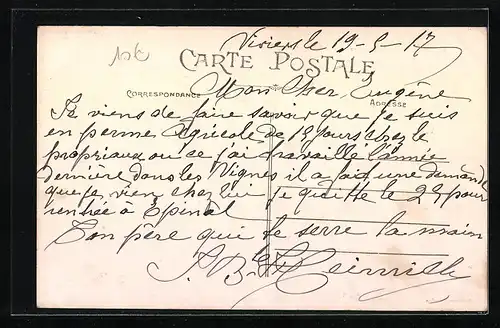 10€
Viviers le 19-5-17
CARTE POSTALE
Mon cher Eugène
CORRESPONDANCE
ADRESSE
Je viens de faire savoir que je suis
en perme Agricole de 12 jours chez le
propriaux ou se j'ai travaillé l'année
dernière dans les Vignes il a fait une demande
que je vien chez lui je quitte le 23 pour
rentrée à Épinal
Ton père qui te serre la main
J. B. Heinrich